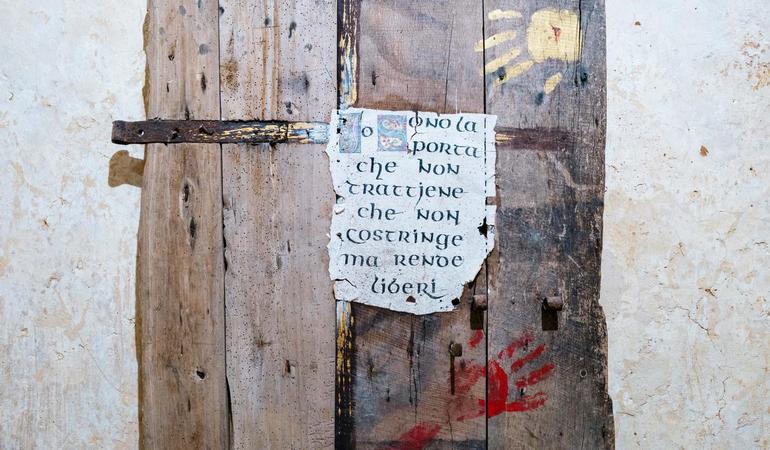 Io SONO la
PORTA
che NON
TRATTIENE
che NON
COSTRINGE
ma RENDE
liberi